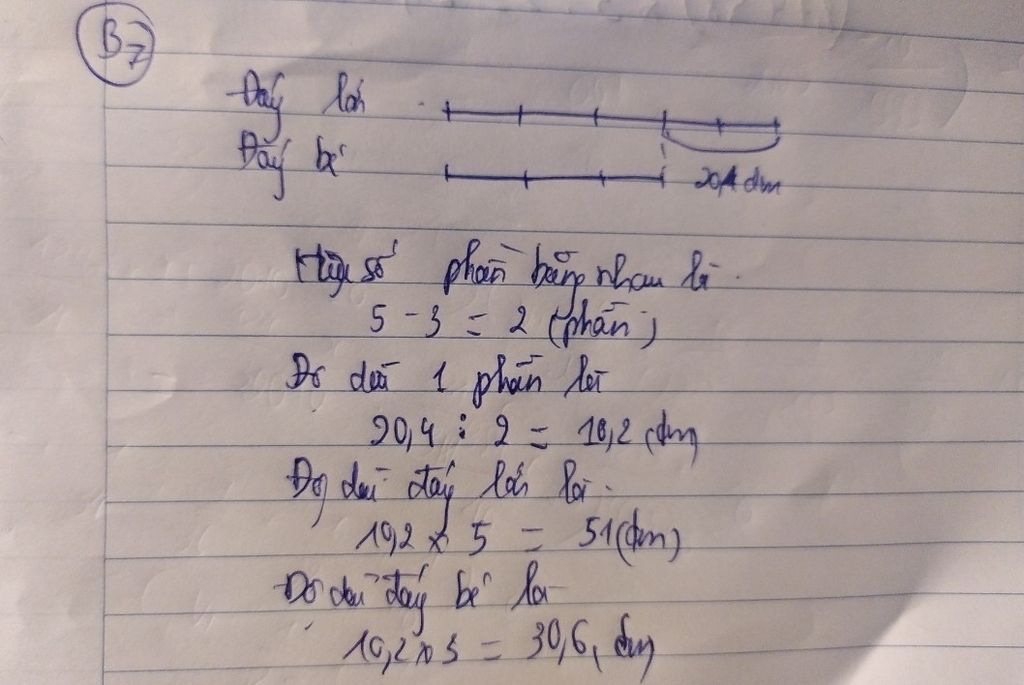 B7
Đáy lớn
Đáy bé
20,4 dm
Hiệu số phần bằng nhau là
5 - 3 = 2 (phần)
Độ dài 1 phần là
20,4 : 2 = 10,2 (dm)
Độ dài đáy lớn là
10,2 x 5 = 51 (dm)
Độ dài đáy bé là
10,2 x 3 = 30,6 dm